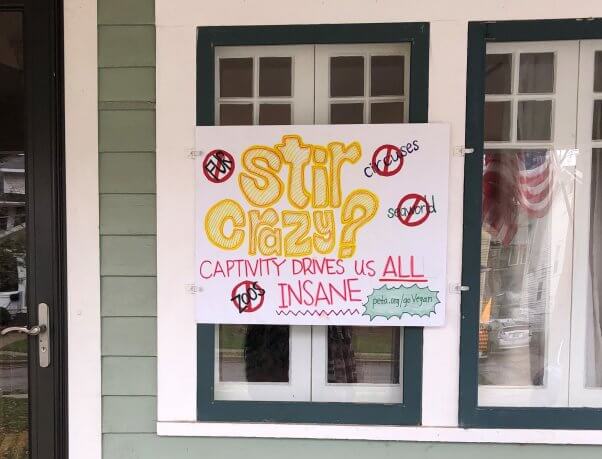 FUR
Stir
circuses
Crazy?
seaworld
CAPTIVITY DRIVES US ALL
INSANE
ZOOS
peta.org/goVegan